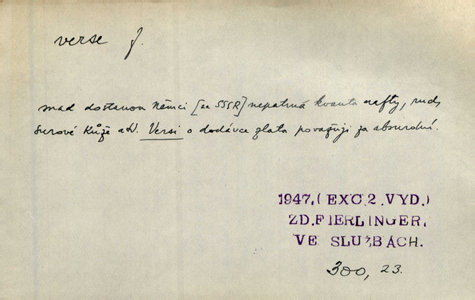 verse f.
snad dostanou Němci [ze SSSR] nepatrná kvanta nafty, rudy,
surové kůže atd. Versi o dodávce zlata považuji za absurdní.
1947.(EXC.2.VYD.)
ZD.FIERLINGER,
VE SLUŽBÁCH.
300, 23.